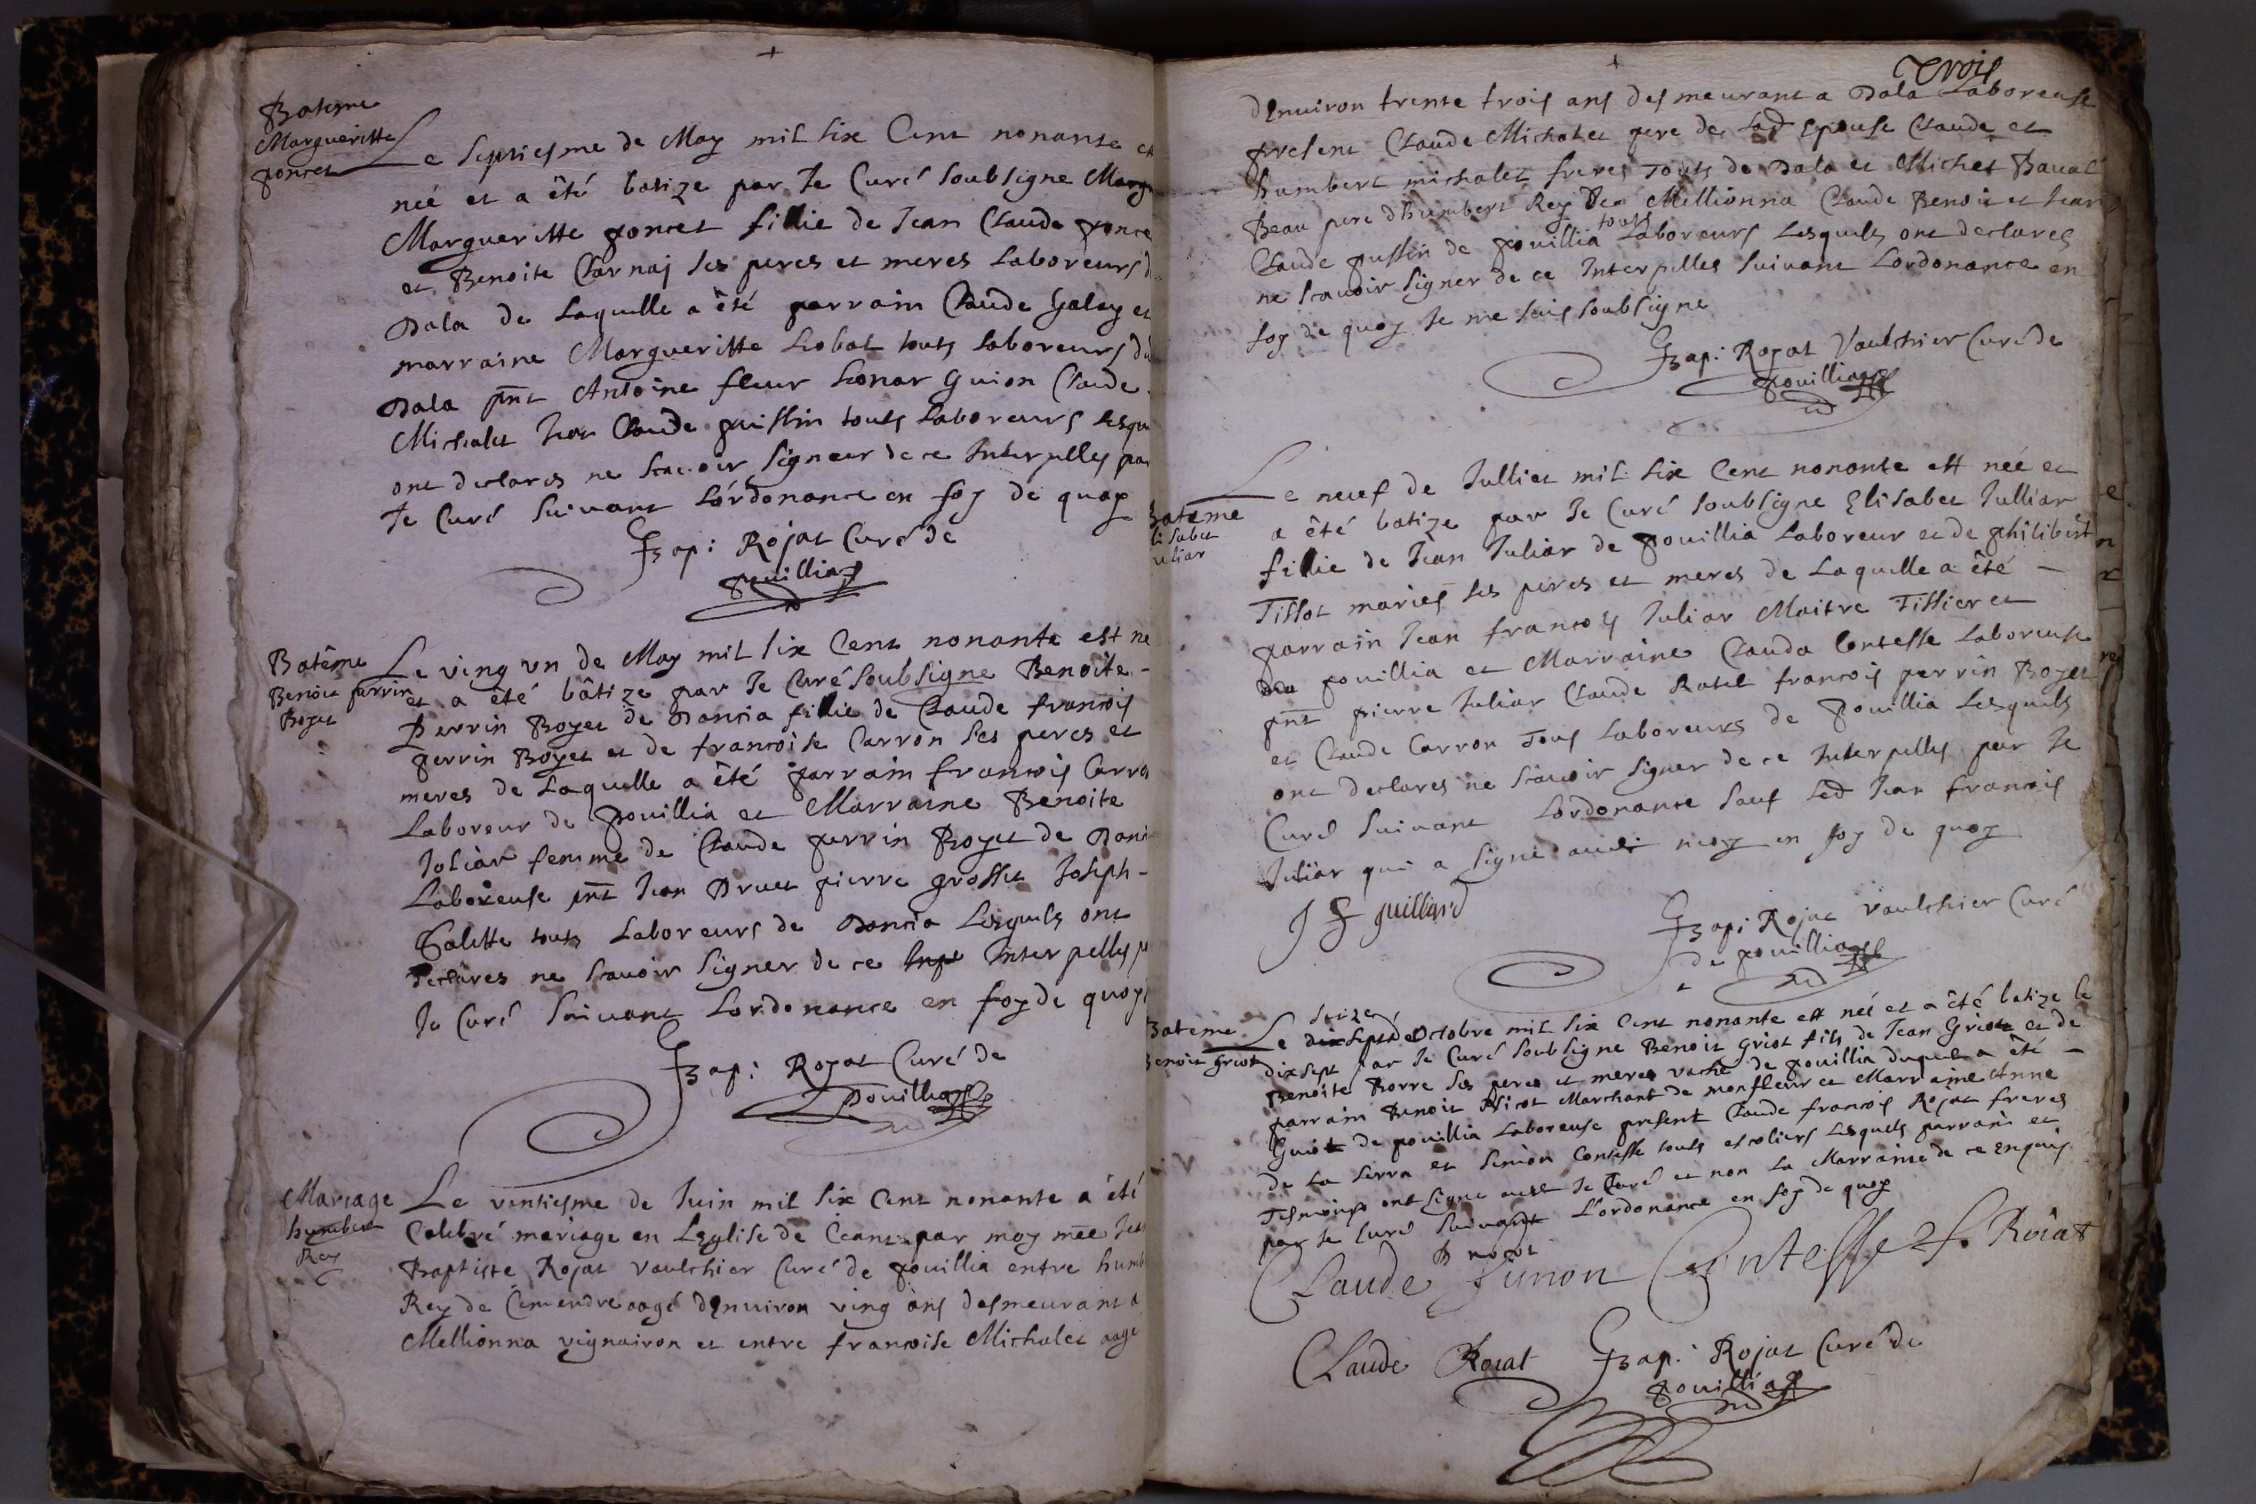 Bateme
Margueritte
poncet
Le septiesme de May mil six Cent nonante est
née et a êté batize par Je Curé soubsigne Marg
Margueritte poncet fillie de Jean Claude ponce
et Benoite Carnaj ses peres et meres Laboreurs d
Dala de Laquelle a êté parrain Claude Galey et
marraine Margueritte Lobat touts laboreurs du
Dala pnt Antoine fleur Leonar Guion Claude
Michalet Jean Claude puissin touts Laboreurs Lesqu
ont declares ne scavoir signer de ce Interpelles par
Je Curé suivant Lordonance en foy de quoy
JBap: Rojat Curé de
pouillia
Batême
Benoite perrin
Boyet
Le ving un de May mil six Cent nonante est ne
et a êté bâtize par Je Curé soubsigne Benoite
Perrin Boyet de Dancia fillie de Claude francois
perrin Boyet et de francoise Carron ses peres et
meres de Laquelle a êté parrain francois Carro
Laboreur de pouillia et Marraine Benoite
Joliar femme de Claude perrin Boyet de Danci
Laboreuse pnt Jean Druet pierre grosset Joseph
Galette touts Laboreurs de Dancia Lesquels ont
declares ne scavoir signer de ce Interpelles p
Je Curé suivant Lordonance en foy de quoy
JBap: Rojat Curé de
Pouillia
Mariage
humbert
Rey
Le ventiesme de Juin mil six Cent nonante a êté
Celebré mariage en Leglise de Ceans par moy mee Jea
Baptiste Rojat vaulchier Curé de pouillia entre humb
Rey de Cimendre aagé d'enuiron ving ans desmeurant a
Mellionna vignairon et entre francoise Michalet aage
Trois
d'enuiron trente trois ans desmeurant a Dala Laboreuse
present Claude Michalet pere de Lad espouse Claude et
humbert michalet freres touts de Dala et Michel Baual
Beau pere d'humbert Rey de Mellionna Claude Benoit et Jean
Claude pussin de pouillia touts Laboreurs Lesquels ont declares
ne scavoir signer de ce Interpelles suivant Lordonance en
foy de quoy Je me suis soubsigne
JBap: Rojat Vaulchier Curé de
pouillia
Bateme
lisabet
uliar
Le neuf de Julliet mil six Cent nonante est née et
a êté batize par Je Curé soubsigne Elisabet Julliar
fillie de Jean Juliar de pouillia Laboreur et de philibert
Tissot mariés ses peres et meres de Laquelle a êté
parrain Jean francois Juliar Maitre Tissier et
pouillia et Marraine Clauda Contesse Laboreuse
pnt pierre Juliar Claude Ratel francois perrin Boyet
et Claude Carron Tous Laboreurs de Pouillia Lesquels
ont declares ne scavoir signer de ce Interpelles par Je
Curé suivant Lordonance sauf Led Jean francois
Juliar qui a signe avec moy en foy de quoy
J F juilliard
JBap: Rojat vaulchier Curé
de pouillia
Bateme
Benoit Griot
seize
Le dixsept d'Octobre mil six Cent nonante est né et a êté batize le
dixsept par Je Curé soubsigne Benoit Griot fils de Jean Griot et de
Benoite Borre ses peres et meres vache de pouillia duquel a êté
parrain Benoit Nicot Marchant de monfleur et Marraine Anne
Guiot de pouillia Laboreuse present Claude francois Rojat freres
de La Serra et Simon Contesse touts escoliers Lesquels parrain et
Tesmoins ont signe avec Je Curé et non La Marraine de ce Enquis
par Je Curé suivant L'ordonance en foy de quoy
B nicot
Claude Simon Contesse f. Roiat
Claude Roiat JBap: Rojat Curé de
pouillia